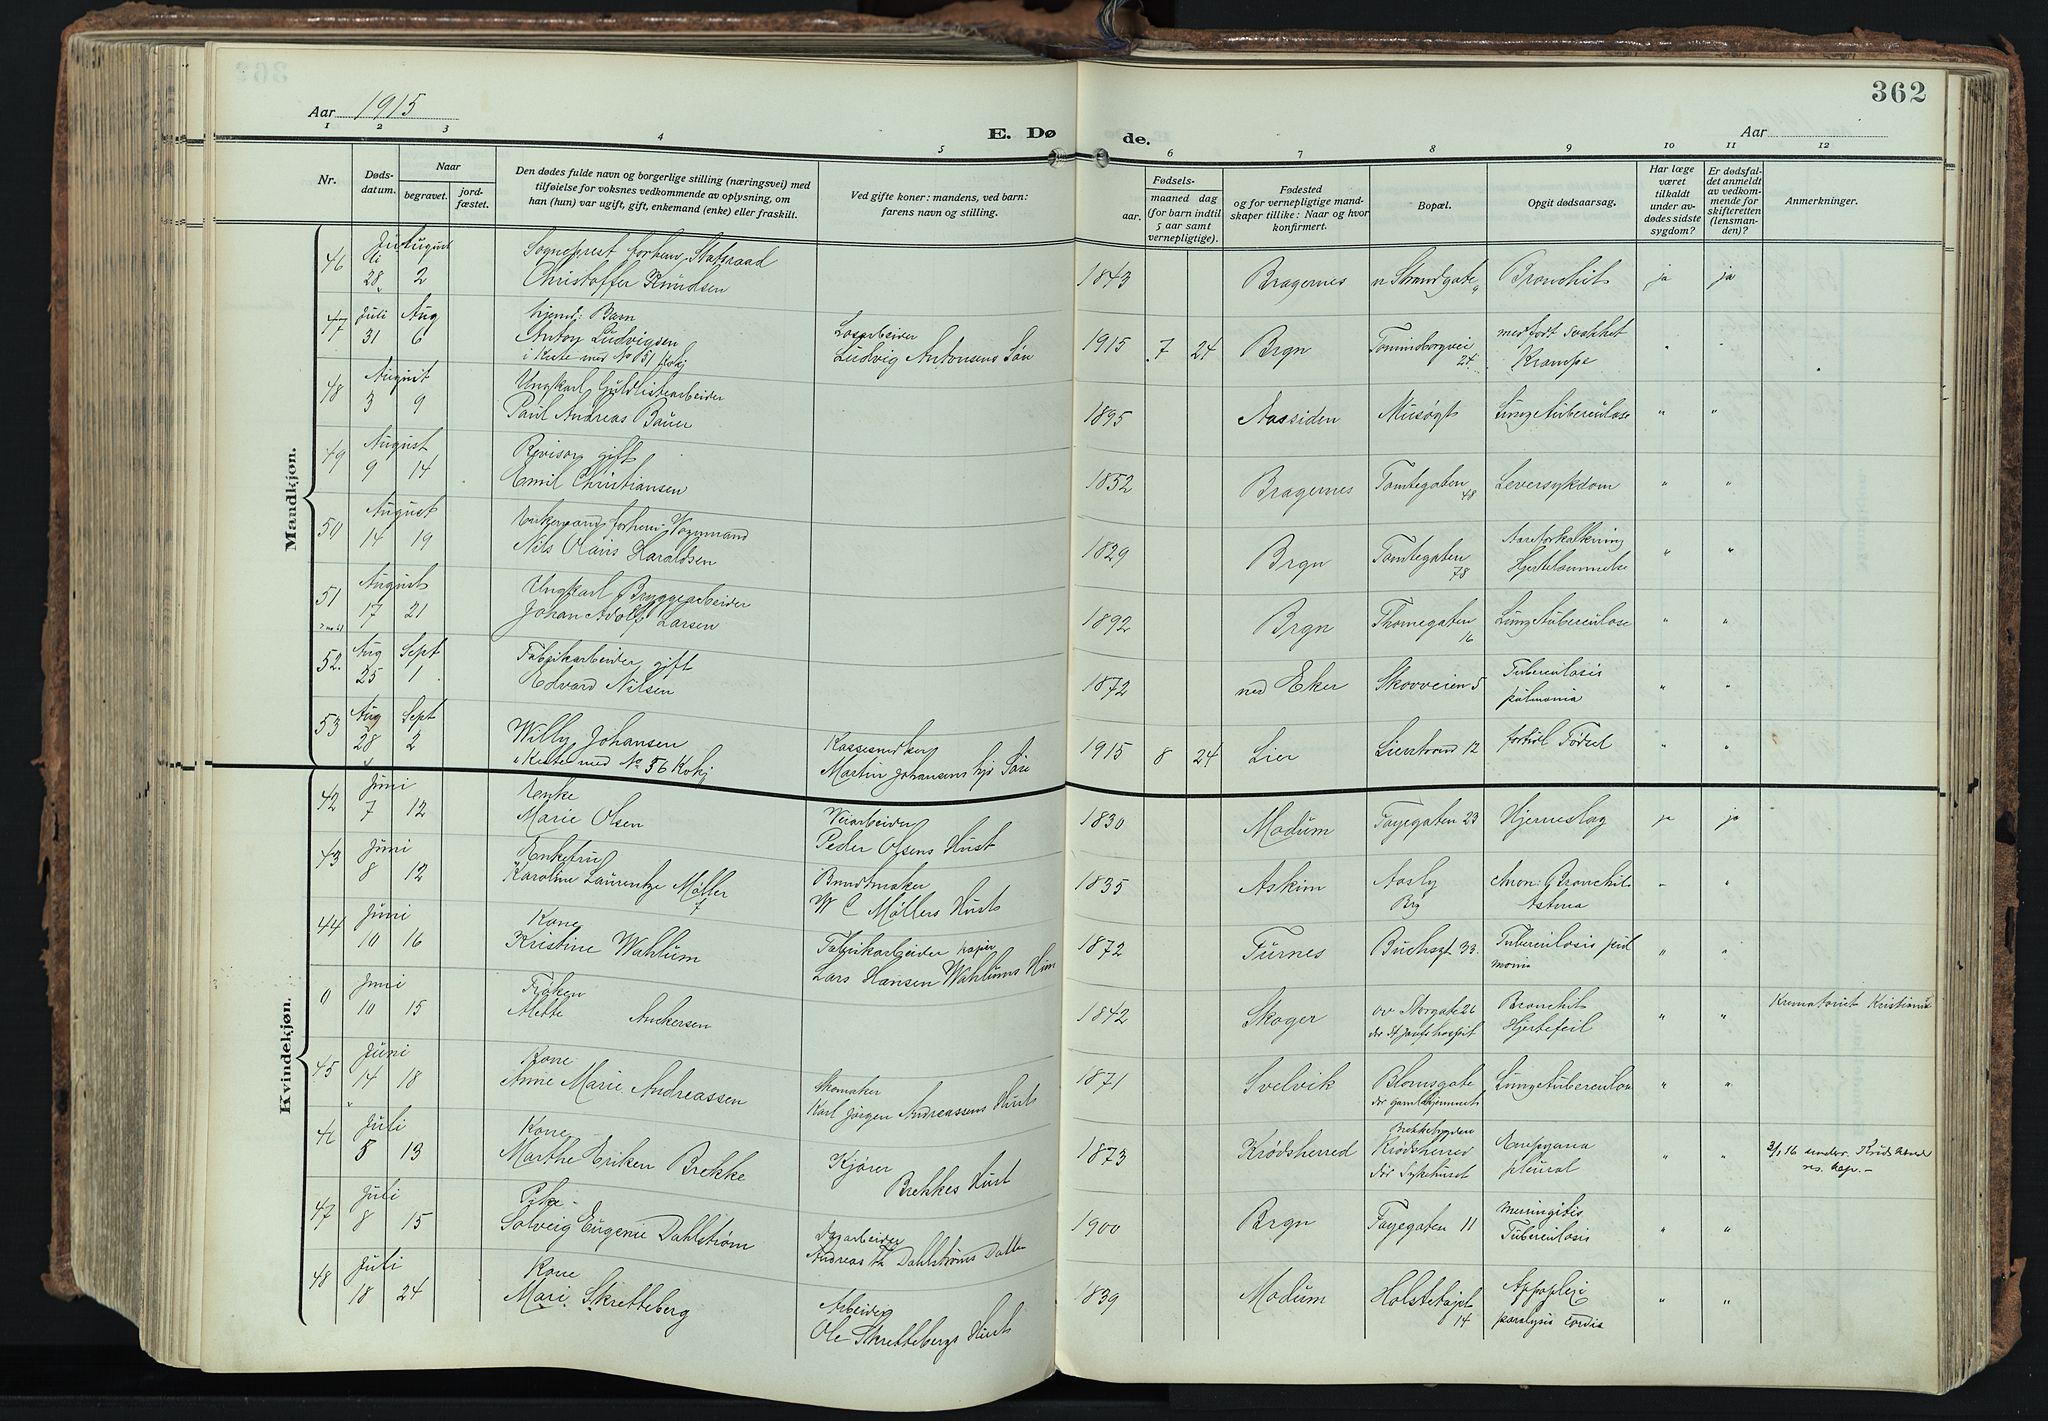 362
Aar 1915
Aar
1 2 3 4 5 6 7 8 9 10 11 12
E. Dø de.
Nr.
Døds-
datum.
Naar
begravet.
jord-
fæstet.
Den dødes fulde navn og borgerlige stilling (næringsvei) med
tilføielse for voksnes vedkommende av oplysning, om
han (hun) var ugift, gift, enkemand (enke) eller fraskilt.
Ved gifte koner: mandens, ved barn:
farens navn og stilling.
Fødsels-
aar.
maaned dag
(for barn indtil
5 aar samt
vernepligtige).
Fødested
og for vernepligtige mand-
skaper tillike: Naar og hvor
konfirmert.
Bopæl.
Opgit dødsaarsag.
Har læge
været
tilkaldt
under av-
dødes sidste
sygdom?
Er dødsfal-
det anmeldt
av vedkom-
mende for
skifteretten
(lensman-
den)?
Anmerkninger.
Mandkjøn.
46 Juli August Sogneprest forhen. Statsraad
28 2 Christoffer Knudsen 1843 Bragernes n Strandgate Bronchit ja ja
47 Juli Aug Barn
31 6 Anton Ludvigsen Løsarbeider 1915 7 24 Brgn Tomineborgvei medfødt svakhet " "
i Kiste med No 51 Ludvig Antonsens Søn 24 Krampe
48 August Ungkarl Guldlistearbeider
3 9 Paul Andreas Bauer 1895 Aassiden Musøgt Lungetuberculose " "
49 August Revisor gift
9 14 Emil Christiansen 1852 Bragernes Tomtegaten 48 Leversykdom " "
50 August Enkemand forhen. Vognmand
14 19 Nils Olaus Haraldsen 1829 Brgn Tomtegaten 78 Aareforkalkning Hjertelammelse " "
51 August Ungkarl Bryggearbeider
17 21 Johan Adolf Larsen 1892 Brgn Thomegaten 16 Lungetuberculose " "
52. Aug Sept Fabrikarbeider gift
25 1 Edvard Nilsen 1872 ned Eker Skovveien 5 Tuberculosis pulmonia " "
53 Aug Sept Willy Johansen Kassesnedker
28 2 i Kiste med No 56 Martin Johansens Søn 1915 8 24 Lier Lierstrand 12 fortidl Fødsel " "
Kvindekjøn.
42 Juni Enke Veiarbeider
7 12 Marie Olsen Peder Olsens Hust 1830 Modum Fayegaten 23 Hjerneslag ja ja
43 Juni Enkefru Bundtmaker
8 12 Karoline Laurentze Møller W C Møllers Hust 1835 Askim Aasly Brg Bronchit Astma " "
44 Juni Kone Fabrikarbeider papir
10 16 Kristine Wahlum Lars Hansen Wahlums 1872 Furnes Buchsgt 33 Tuberculosis pulmonia " "
0 Juni Frøken
10 15 Mette Anckersen 1842 Skoger ov Storgate 26 Bronchit Hjertefeil " " Krematoriet Kristiania
45 Juni Kone Skomaker
14 18 Anne Marie Andreassen Karl Jørgen Andreassens Hust 1871 Svelvik Blomsgate Lungetuberculose " "
Juli Kone
5 13 Marthe Eriken Brekke Kjører Brekkes Hust 1873 Krødsherred Brekkebygden Krødsherred Empyema pleural " "
død Sykehuset
47 Juli Pike Dagarbeider
8 15 Solveig Eugenie Dahlstrøm Andreas Th Dahlstrøms Datter 1900 Brgn Fayegaten 11 meningitis Tuberculosis " "
48 Juli Kone Arbeider
18 24 Mari Skretteberg Ole Skrettebergs Hust 1839 Modum 14 Appoplexi paralysis cordis " "